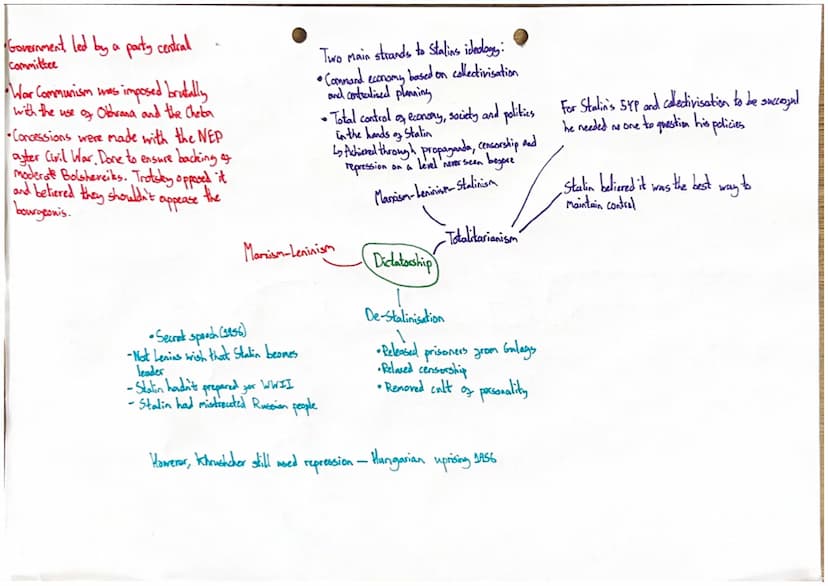 • Government led by a party central
committee
• War Communism was imposed brutally
with the use of Okhrana and the Cheka
• Concessions were made with the NEP
after Civil War. Done to ensure backing of
moderate Bolsheveiks. Trotsky opposed it
and believed they shouldn't appease the
bourgeois.
Marxism-Leninism
Two main strands to Stalins ideology:
• Command economy based on collectivisation
and centralised planning
• Total control of economy, society and politics
in the hands of Stalin
↳ Achieved through propaganda, censorship and
repression on a level never seen before
Marxism-Leninism-Stalinism
Totalitarianism
For Stalin's 5YP and collectivisation to be successful
he needed no one to question his policies
Stalin believed it was the best way to
maintain control
Dictatorship
De-Stalinisation
• Secret speech (1956)
- Not Lenins wish that Stalin becomes
leader
- Stalin hadn't prepared for WWII
- Stalin had mistreated Russian people
• Released prisoners from Gulags
• Relaxed censorship
• Removed cult of personality
However, Khrushchev still used repression — Hungarian uprising 1956